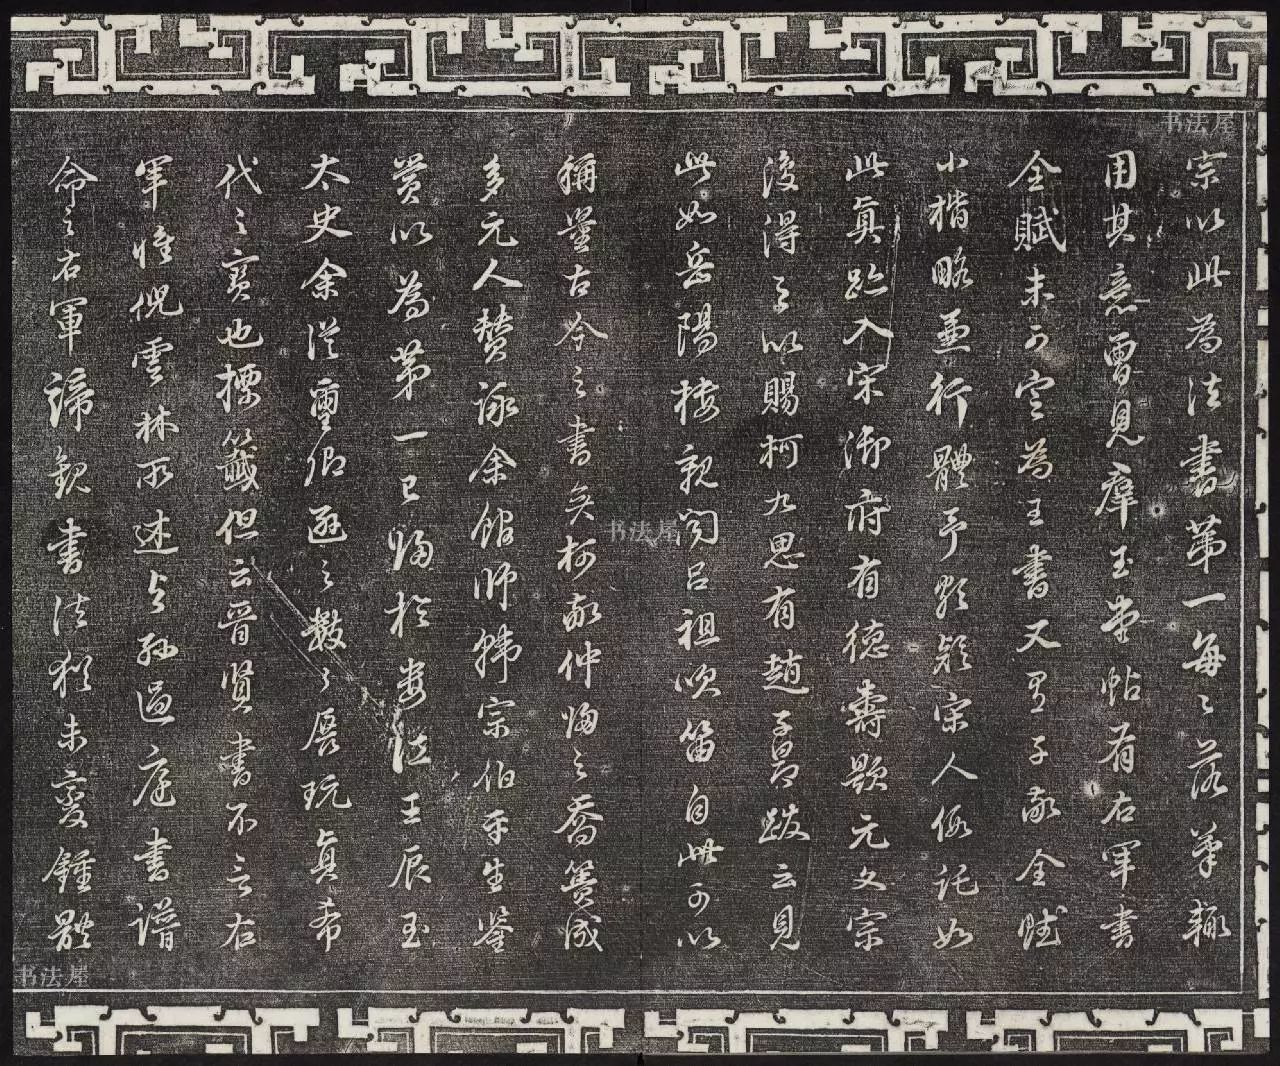 宗以此為法書第一每々落筆輙
用其意曾見群玉堂帖有右軍書
全賦未可定為王書又有子敬全賦
小楷略兼行體予頗疑宋人偽託如
此真跡入宋御府有德壽題元文宗
復得之以賜柯九思有趙子昂跋云見
此如岳陽樓親聞呂祖吹笛自此可以
稱量古今之書矣柯敬仲歸之喬簣成
多元人贊詠余館師韓宗伯平生鑒
賞以為第一已歸於婁江王辰玉
太史余從璽卿遜之數々展玩真希
代之寶也標籤但云晉賢書不言右
軍惟倪雲林所述與孫過庭書譜
命之右軍諦觀書法猶未變鍾體
书法屋
书法屋
书法屋